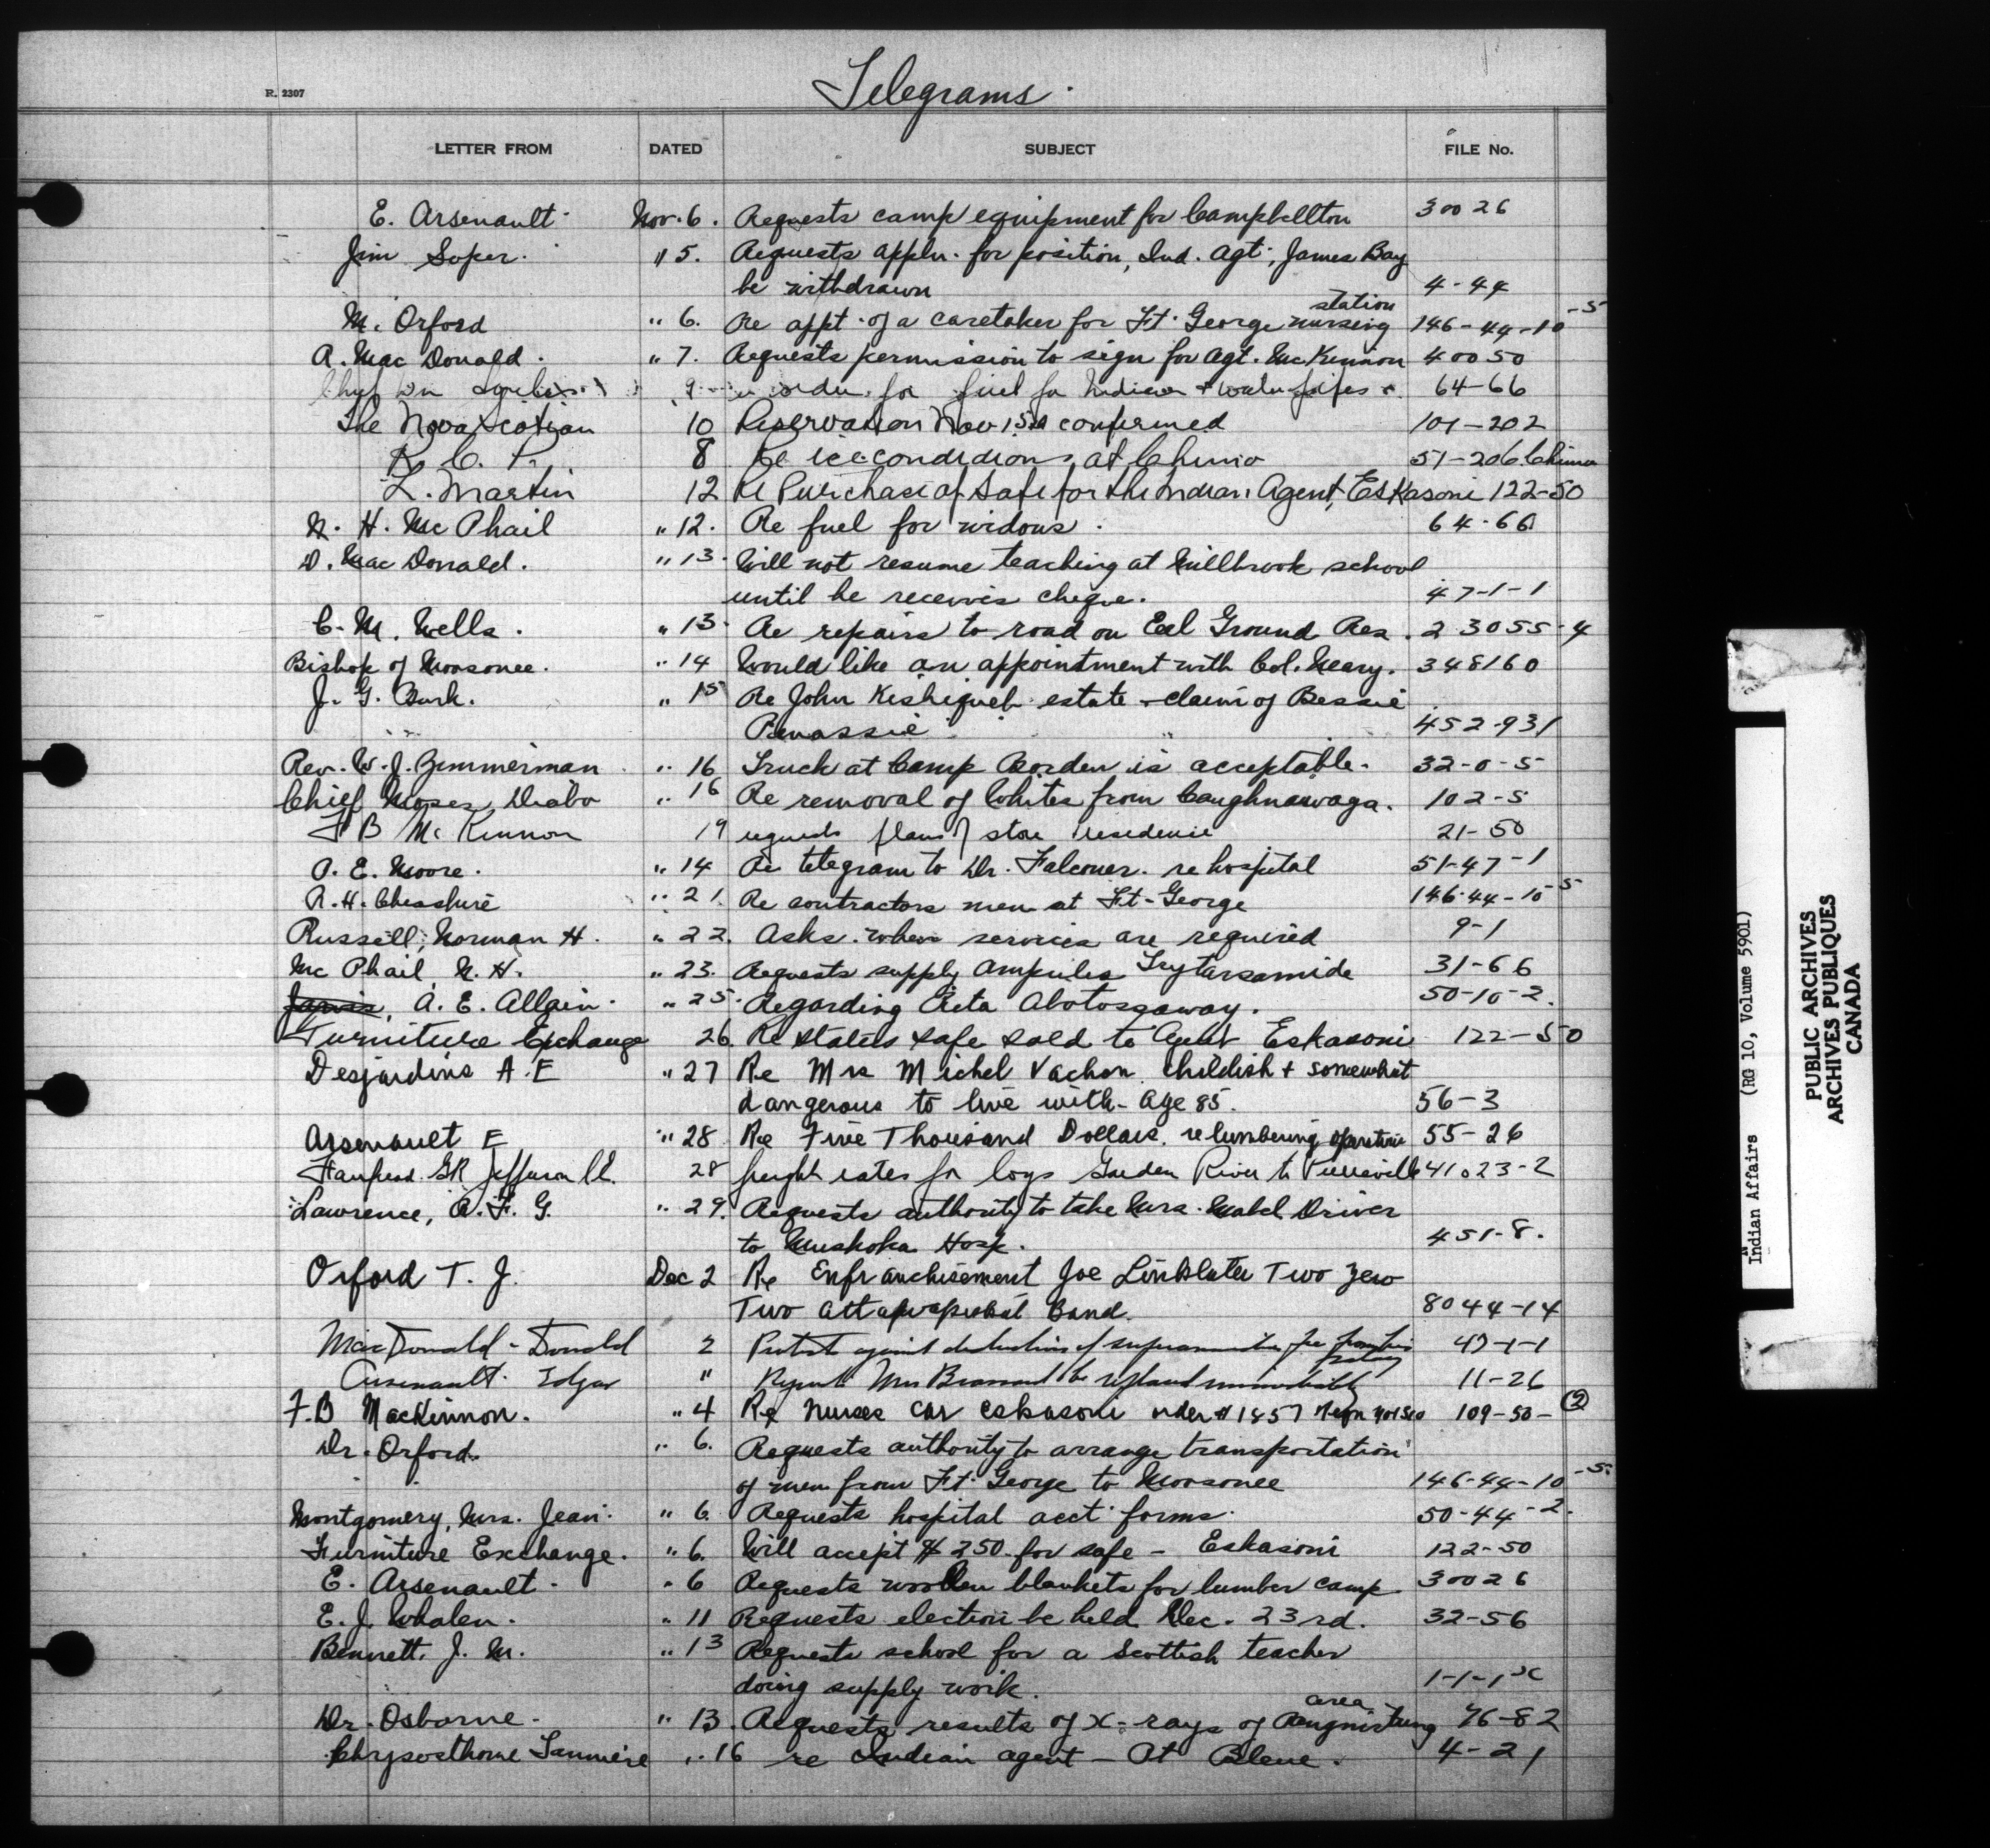 Telegrams.
R. 2307
LETTER FROM DATED SUBJECT FILE No.
E. Arsenault Nov. 6. Requests camp equipment for Campbellton 30026
Jim Soper. " 5. Requests appln. for position, Ind. Agt., James Bay
be withdrawn 4-44
station
M. Orford " 6. Re appt. of a caretaker for Ft. George nursing 146-44-10-5
A. Mac Donald. " 7. Requests permission to sign for Agt. McKinnon 40050
9 order for fuel for Indian + water pipes 64-66
The Nova Scotian 10 Reservation Nov 15th confirmed 101-202
R. C. P. 8 Re ice conditions at Chimo 51-206 Chimo
L. Martin 12 Re Purchase of Safe for the Indian Agent, Eskasoni 122-50
N. H. Mc Phail " 12. Re fuel for widows. 64-66
D. Mac Donald. " 13. Will not resume teaching at Millbrook school
until he receives cheque. 47-1-1
C. M. Wells. " 13. Re repairs to road on Eel Ground Res. 23055-4
Bishop of Moosonee. " 14 Would like an appointment with Col. Neary. 348160
J. G. Burk. " 15 Re John Kishiqueb estate - claim of Bessie
Penassie 452-931
Rev. W. J. Zimmerman " 16 Truck at Camp Borden is acceptable. 32-0-5
Chief Moses Diabo " 16 Re removal of Whites from Caughnawaga. 102-5
F B McKinnon 19 requests plans of store residence 21-50
P. E. Moore. " 14 Re telegram to Dr. Falconer. re hospital 51-47-1
R. H. Cheshire " 21. Re contractors men at Ft-George 146-44-10-5
Russell, Norman H. " 22. Asks when services are required 9-1
Mc Phail, N. H. " 23. Requests supply ampules Tryparsamide 31-66
Jarvis, A. E. Allain. " 25. Regarding Rita Abotossaway. 50-10-2.
Furniture Exchange 26. Re States safe sold to Agent Eskasoni 122-50
Desjardins A. E " 27 Re Mrs Michel Vachon childish + somewhat
dangerous to live with - Age 85. 56-3
Arsenault E " 28 Re Five Thousand Dollars. re lumbering operations 55-26
G R Jefferson 28 freight rates for logs Garden River to Pierreville 41023-2
Lawrence, A. F. G. " 29. Requests authority to take Mrs. Mabel Driver
to Muskoka Hosp. 451-8.
Orford T. J. Dec 2 Re Enfranchisement Joe Linklater Two Zero
Two Attawapiskat Band. 8044-14
MacDonald - Donald 2 Protest against deduction of superannuation fee from his
salary 47-1-1
Arsenault. Edgar " Request Mrs be replaced immediately 11-26
F. B MacKinnon. " 4 Re Nurses car Eskasoni order # 1857 109-50-2
Dr. Orford. " 6. Requests authority to arrange transportation
of men from Ft. George to Moosonee 146-44-10-5.
Montgomery, Mrs. Jean. " 6. Requests hospital acct forms. 50-44-2.
Furniture Exchange. " 6. Will accept $250. for safe - Eskasoni 122-50
E. Arsenault. " 6 Requests woollen blankets for lumber camp 30026
E. J. Whalen. " 11 Requests election be held Dec. 23rd. 32-56
Bennett, J. M. " 13 Requests school for a Scottish teacher
doing supply work. 1-1-1 X
area
Dr. Osborne. " 13. Requests results of X-rays of Pangnirtung 76-82
Chrysosthome " 16 re Indian agent - At Bleue. 4-21
Indian Affairs (RG 10, Volume 5901)
PUBLIC ARCHIVES
ARCHIVES PUBLIQUES
CANADA